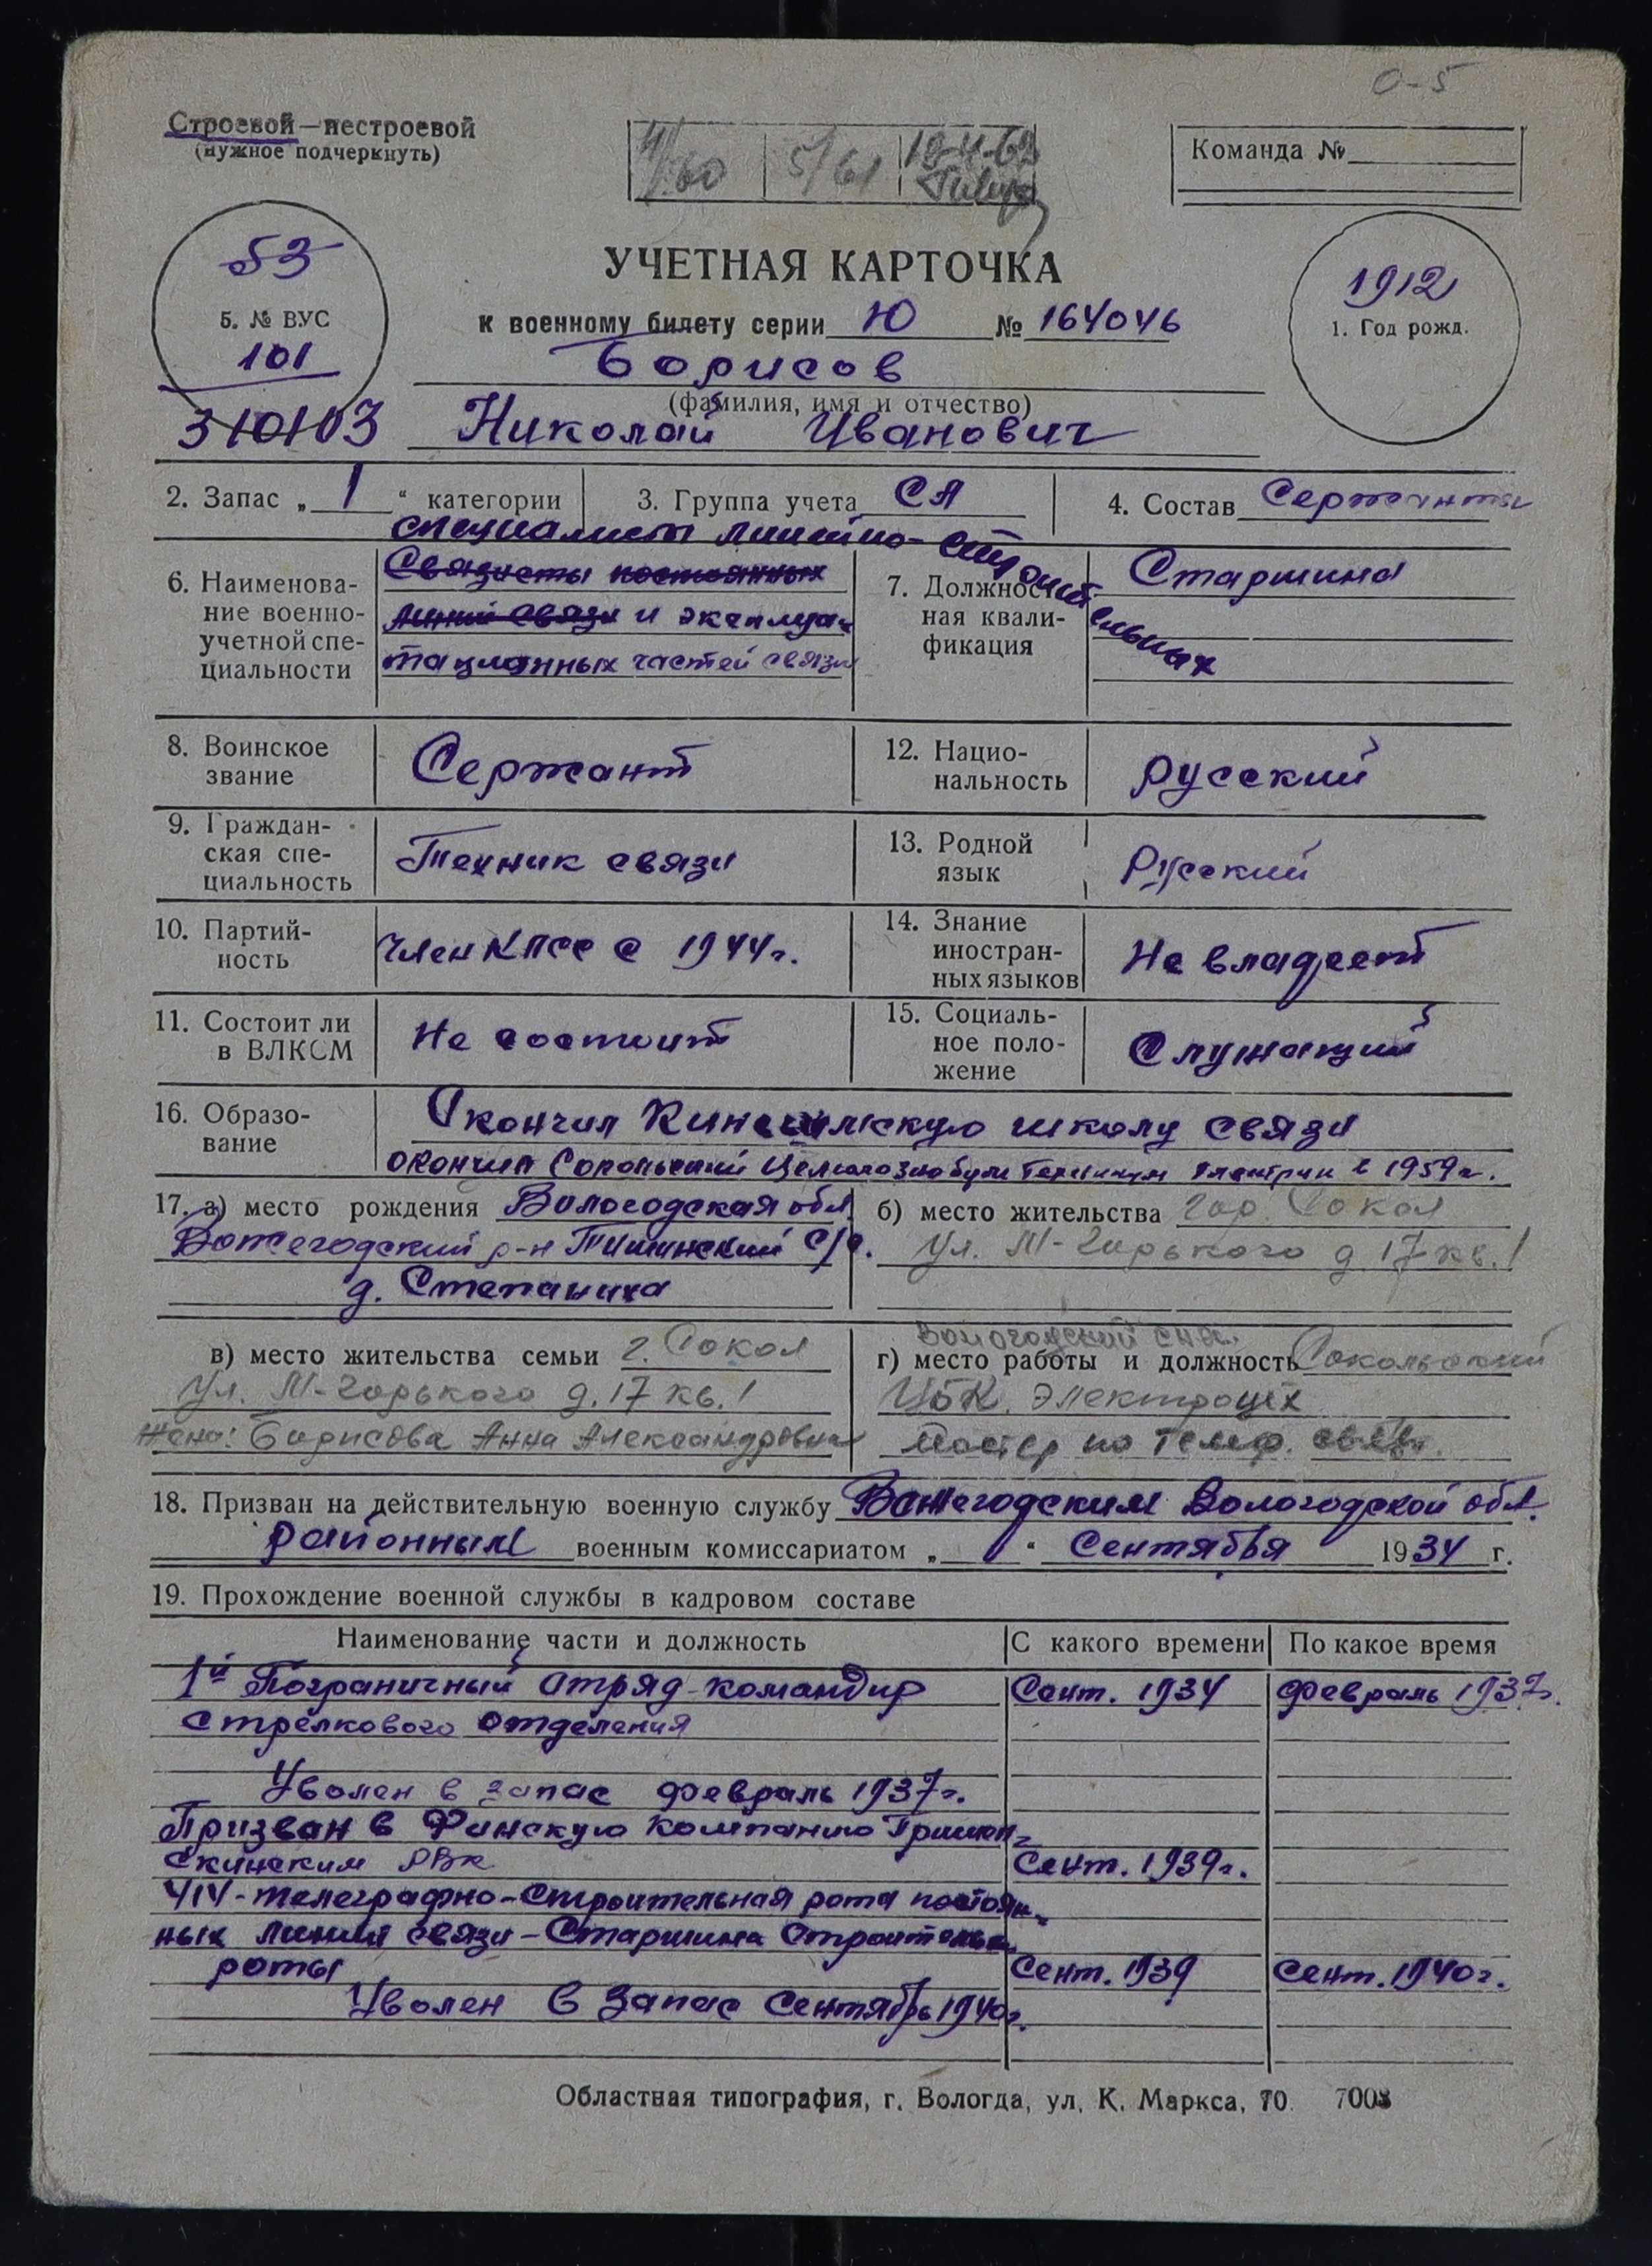 О-5
Строевой—нестроевой
(нужное подчеркнуть)
5/61
Команда №
53
5. № ВУС
101
310103
УЧЕТНАЯ КАРТОЧКА
к военному билету серии Ю № 164046
1912
1. Год рожд.
Борисов
(фамилия, имя и отчество)
Николай Иванович
2. Запас „ 1 “ категории
3. Группа учета СА
4. Состав Сержанты
специалисты линейно-строительных
6. Наименова-
ние военно-
учетной спе-
циальности
Связисты постоянных
линий связи и эксплуа-
тационных частей связи
7. Должност-
ная квали-
фикация
Старшина
8. Воинское
звание
Сержант
12. Нацио-
нальность
русский
9. Граждан-
ская спе-
циальность
Техник связи
13. Родной
язык
Русский
10. Партий-
ность
Член КПСС с 1944г.
14. Знание
иностран-
ных языков
Не владеет
11. Состоит ли
в ВЛКСМ
Не состоит
15. Социаль-
ное поло-
жение
Служащий
16. Образо-
вание
Окончил школу связи
окончил в 1959г.
17. а) место рождения Вологодская обл.
Вожегодский р-н Тишинский С/С.
д. Степаниха
б) место жительства гор. Сокол
ул. М-Горького д. 17 кв. 1
в) место жительства семьи г. Сокол
ул. М-Горького д. 17 кв. 1
Жена: Борисова Анна Александровна
Вологодский СНХ.
г) место работы и должность Сокольский
ЦБК. Электроцех
мастер по телеф. связи.
18. Призван на действительную военную службу Вожегодским Вологодской обл.
районным военным комиссариатом „ “ Сентября 1934 г.
19. Прохождение военной службы в кадровом составе
Наименование части и должность
С какого времени
По какое время
1й Пограничный отряд-командир
Сент. 1934
февраль 1937г.
стрелкового отделения
Уволен в запас февраль 1937г.
Призван в Финскую компанию
РВК
Сент. 1939г.
414-телеграфно-строительная рота постоян-
ных линий связи-Старшина
роты
Сент. 1939
Сент. 1940г.
Уволен в запас Сентябрь 1940г.
Областная типография, г. Вологда, ул. К. Маркса, 70.